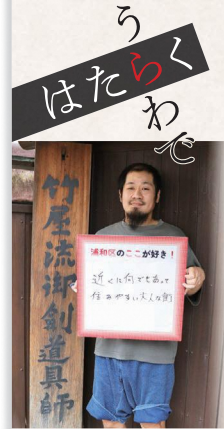 うらわで
はたらく
竹屋流御剣道具師
浦和区のここが好き!
近くに何でもあって
住みやすい大人な街